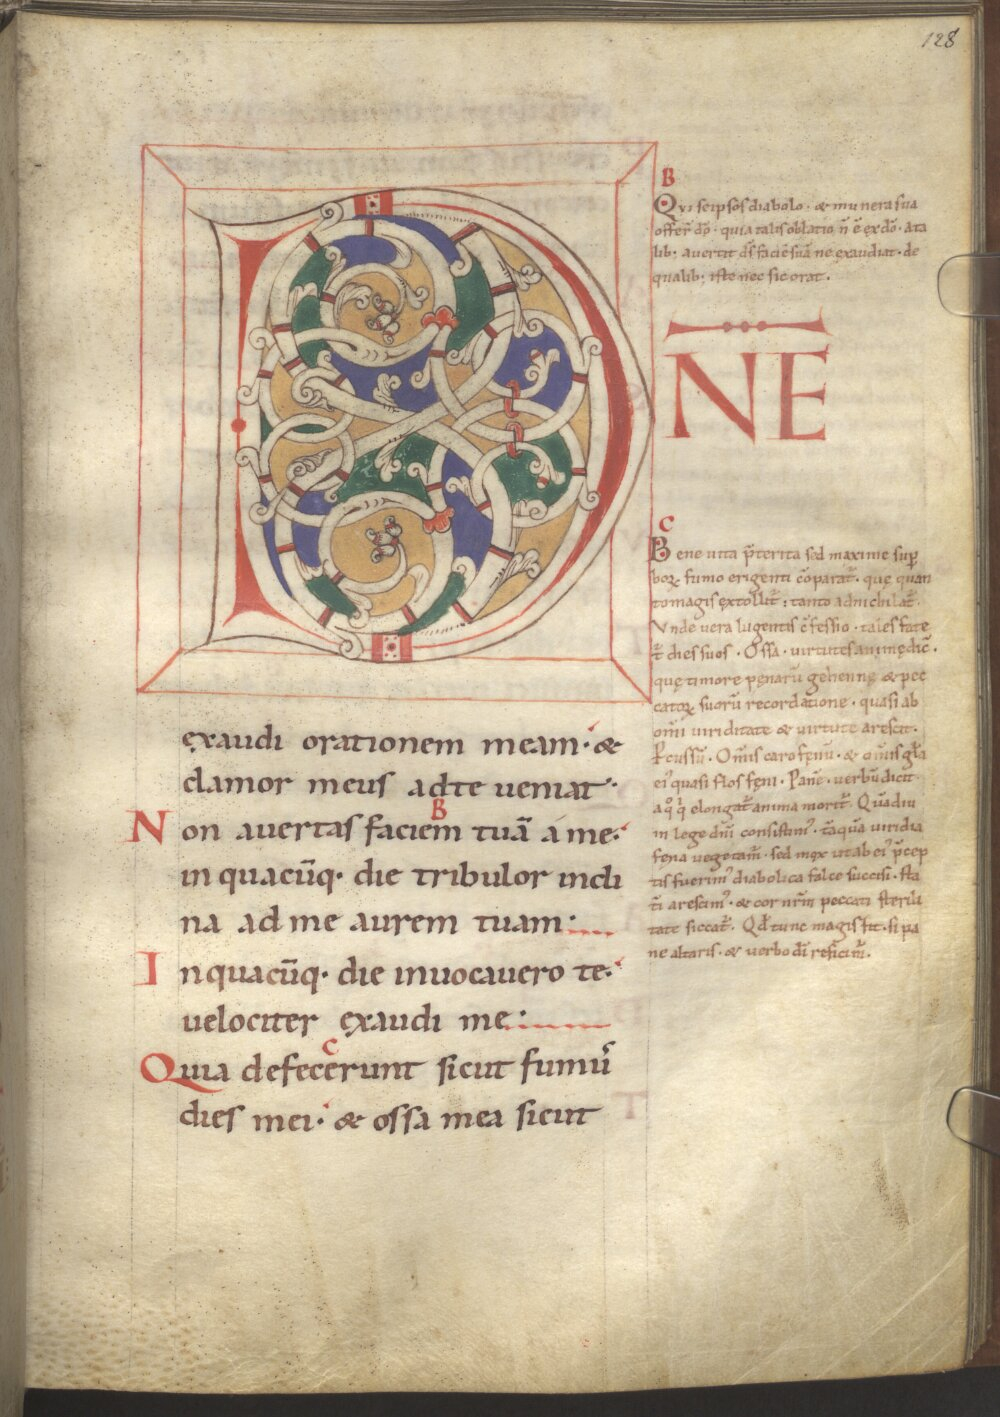 128
D
NE
exaudi orationem meam· &
clamor meus adte ueniat·
Non auertas faciem tuā a me·
B
in quacūq· die tribulor incli
na ad me aurem tuam:
Inquacūq· die inuocauero te·
uelociter exaudi me:
C
Quia defecerunt sicut fumus
dies mei· & ossa mea sicut
B
Qui seipsos diabolo· & munera sua
offer̄ dō· quia talis oblatio n̄ ē ex dō· a ta
lib; auertit ds̄ faciē suā ne exaudiat· de
qualib; iste nec sic orat·
C
Bene uita p̄terita sed maxime sup
boꝝ fumo erigenti cōparat̄· quę quan
tomagis extollit̄; tanto adnichilat̄·
Vnde uera lugentis cfessio· tales fate
t̄ dies suos· Ossa· uirtutes animę dic̄·
quę timore penarū gehennę & pec
catoꝝ suorū recordatione· quasi ab
omi uiriditate & uirtute arescit·
Om̄is caro fęnū· & om̄is gl̄a
ei' quasi flos feni· Pane· uerbū dicit·
elongat̄ anima morit̄· Quādiu
in lege dn̄i consistim'· tāquā uiridia
fena uegetam̄· sed mox ut ab ei' p̄cep
tis fuerim' diabolica falce succisi· sta
ti arescim'· & cor nr̄m peccati sterili
tate siccat̄· Qd tunc magis fit· si pa
ne altaris· & uerbo dī reficim̄·